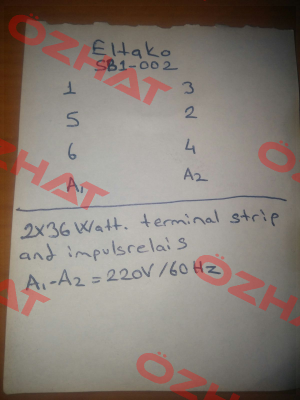 ÖZHAT
Eltako
SB1-002
1 3
5 2
6 4
A1 A2
2x36 Watt. terminal strip
and impulsrelais
A1-A2 = 220V/60Hz
ÖZHAT
ÖZHAT
ÖZHAT
ÖZHAT